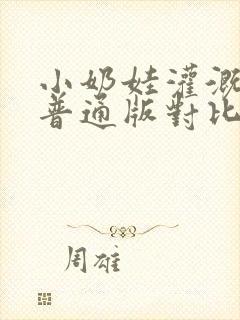 小奶娃灌溉
普通版對比
周雄